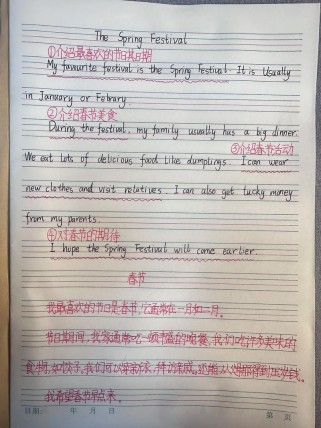 The Spring Festival
①介绍最喜欢的节日及日期
My favourite festival is the Spring Festival. It is usually
in January or Febrary.
②介绍春节美食
During the festival, my family usually has a big dinner.
③介绍春节活动
We eat lots of delicious food like dumplings. I can wear
new clothes and visit relatives. I can also get lucky money
from my parents.
④对春节的期待
I hope the Spring Festival will come earlier.
春节
我最喜欢的节日是春节,它通常在一月和二月。
节日期间,我家通常吃一顿丰盛的晚餐,我们吃许多美味的
食物,如饺子,我们可以穿新衣,拜访亲戚。还能从父母那得到压岁钱。
我希望春节早点来。
日期: 年 月 日 第 页